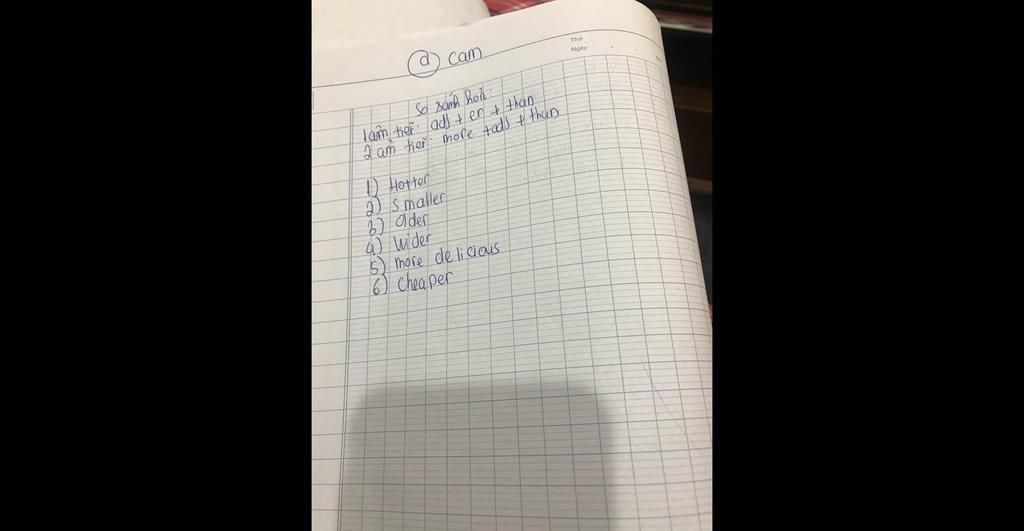 Thứ
Ngày
a cam
So sánh hơn:
1 âm tiết: adj + er + than
2 âm tiết: more + adj + than
1) Hotter
2) Smaller
3) Older
4) Wider
5) more delicious
6) Cheaper